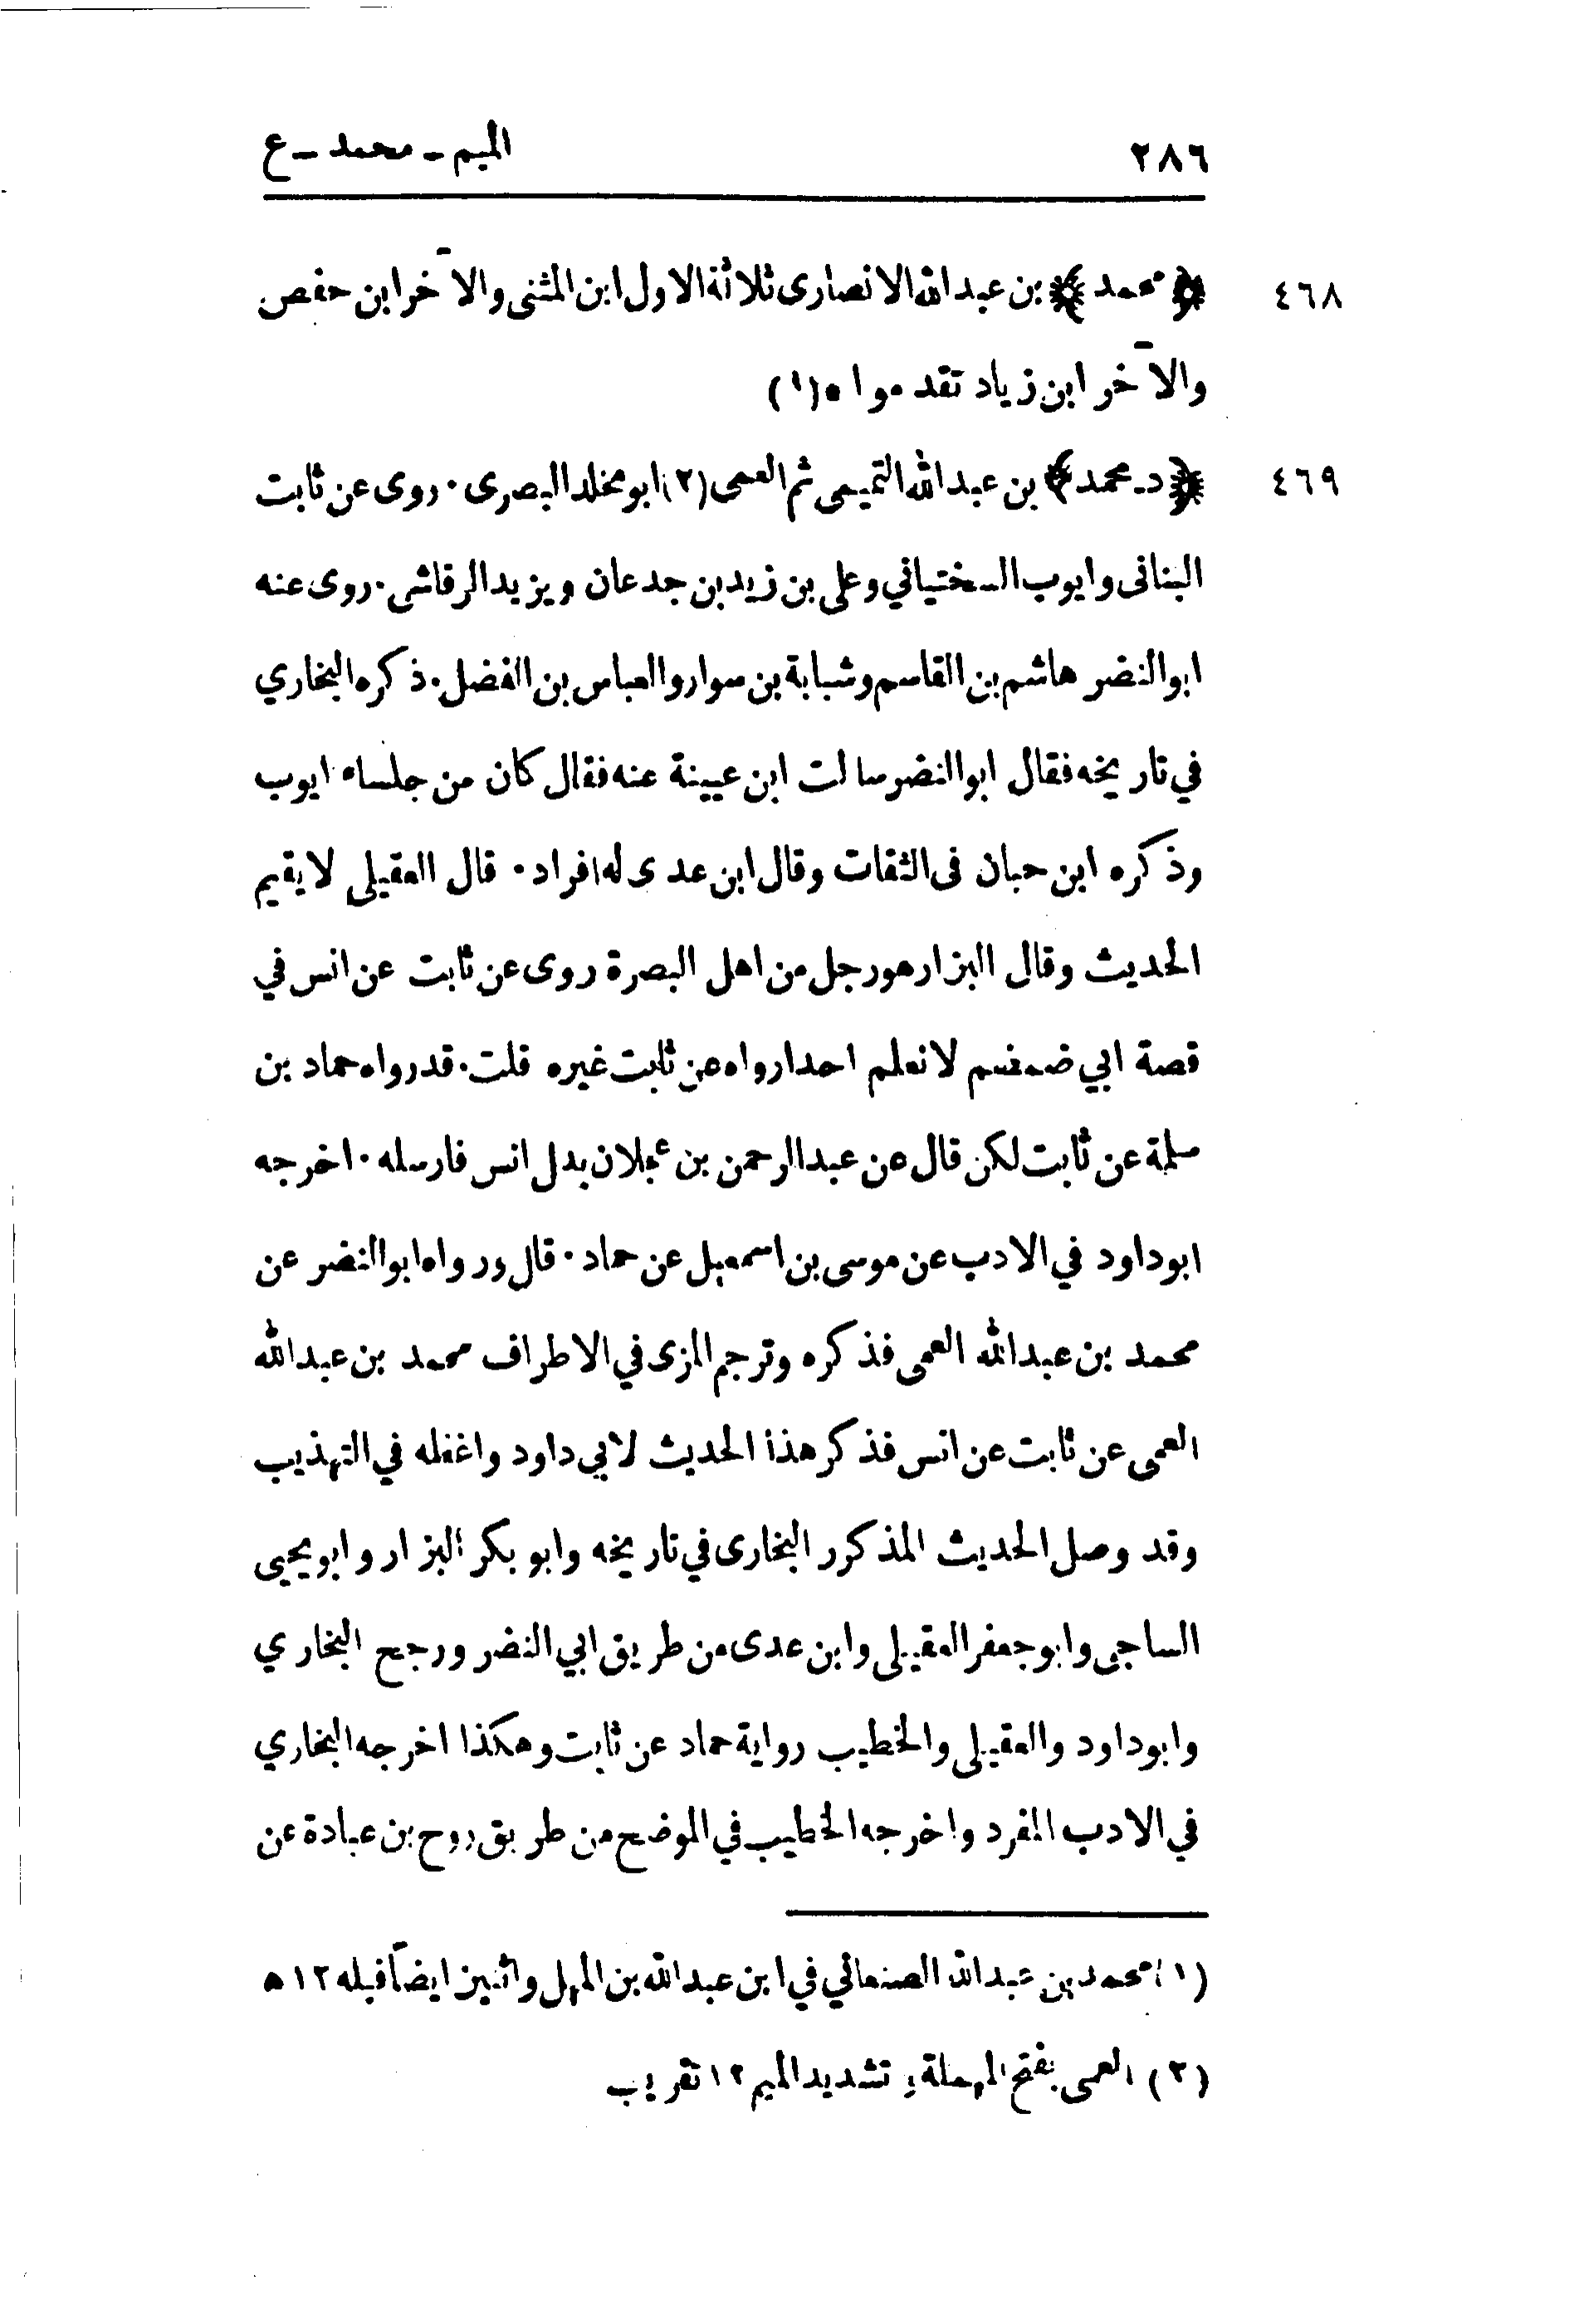 ٢٨٦ الميم - محمد - ع
٤٦٨ ﴿ محمد ﴾ بن عبد الله الانصارى ثلاثة الاول ابن المثنى والآخر ابن حفص
والآخر ابن زياد تقدموا ه (١)
٤٦٩ ﴿ د - محمد ﴾ بن عبد الله التميمى ثم العمى (٢) ابو مخلد البصرى · روى عن ثابت
البنانى وايوب السختياني وعلى بن زيد بن جدعان ويزيد الرقاشى · روى عنه
ابو النضر هاشم بن القاسم وشبابة بن سوار والعباس بن الفضل · ذكره البخاري
في تاريخه فقال ابو النضر سالت ابن عيينة عنه فقال كان من جلساء ايوب
وذكره ابن حبان فى الثقات وقال ابن عدى له افراد · قال العقيلى لا يقيم
الحديث وقال البزار هو رجل من اهل البصرة روى عن ثابت عن انس في
قصة ابي ضمضم لا نعلم احدا رواه عن ثابت غيره قلت · قد رواه حماد بن
سلمة عن ثابت لكن قال عن عبد الرحمن بن عجلان بدل انس فارسله · اخرجه
ابو داود في الادب عن موسى بن اسمعيل عن حماد · قال ورواه ابو النضر عن
محمد بن عبد الله العمى فذكره وترجم المزى في الاطراف محمد بن عبد الله
العمى عن ثابت عن انس فذكر هذا الحديث لابي داود واغفله في التهذيب
وقد وصل الحديث المذكور البخارى في تاريخه وابو بكر البزار وابو يحيى
الساجى وابو جعفر العقيلى وابن عدى من طريق ابي النضر ورجح البخاري
وابو داود والعقيلى والخطيب رواية حماد عن ثابت وهكذا اخرجه البخاري
في الادب المفرد واخرجه الخطيب في الموضح من طريق روح بن عبادة عن
(١) محمد بن عبد الله الصنعاني في ابن عبد الله بن المهل واثنين ايضاً قبله ١٢ ه
(٢) العمى بفتح المهملة وتشديد الميم ١٢ تقريب